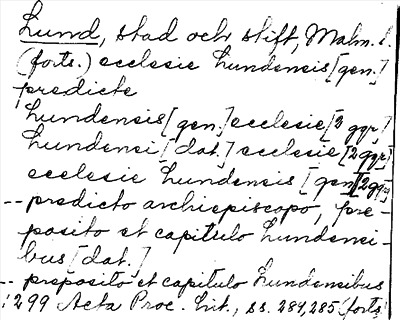 Lund, stad och stift, Malm. l.
(forts.) ecclesie Lundensis [gen.]
predicte
Lundensis [gen.] ecclesie [3 ggr]
Lundensi [dat.] ecclesie [2 ggr]
ecclesie Lundensis [gen.] [2 ggr]
-- predicto archiepiscopo, pre-
posito et capitulo Lundensi-
bus [dat.]
-- preposito et capitulo Lundensibus
1299 Acta Proc. Lit., ss. 284, 285 (forts.